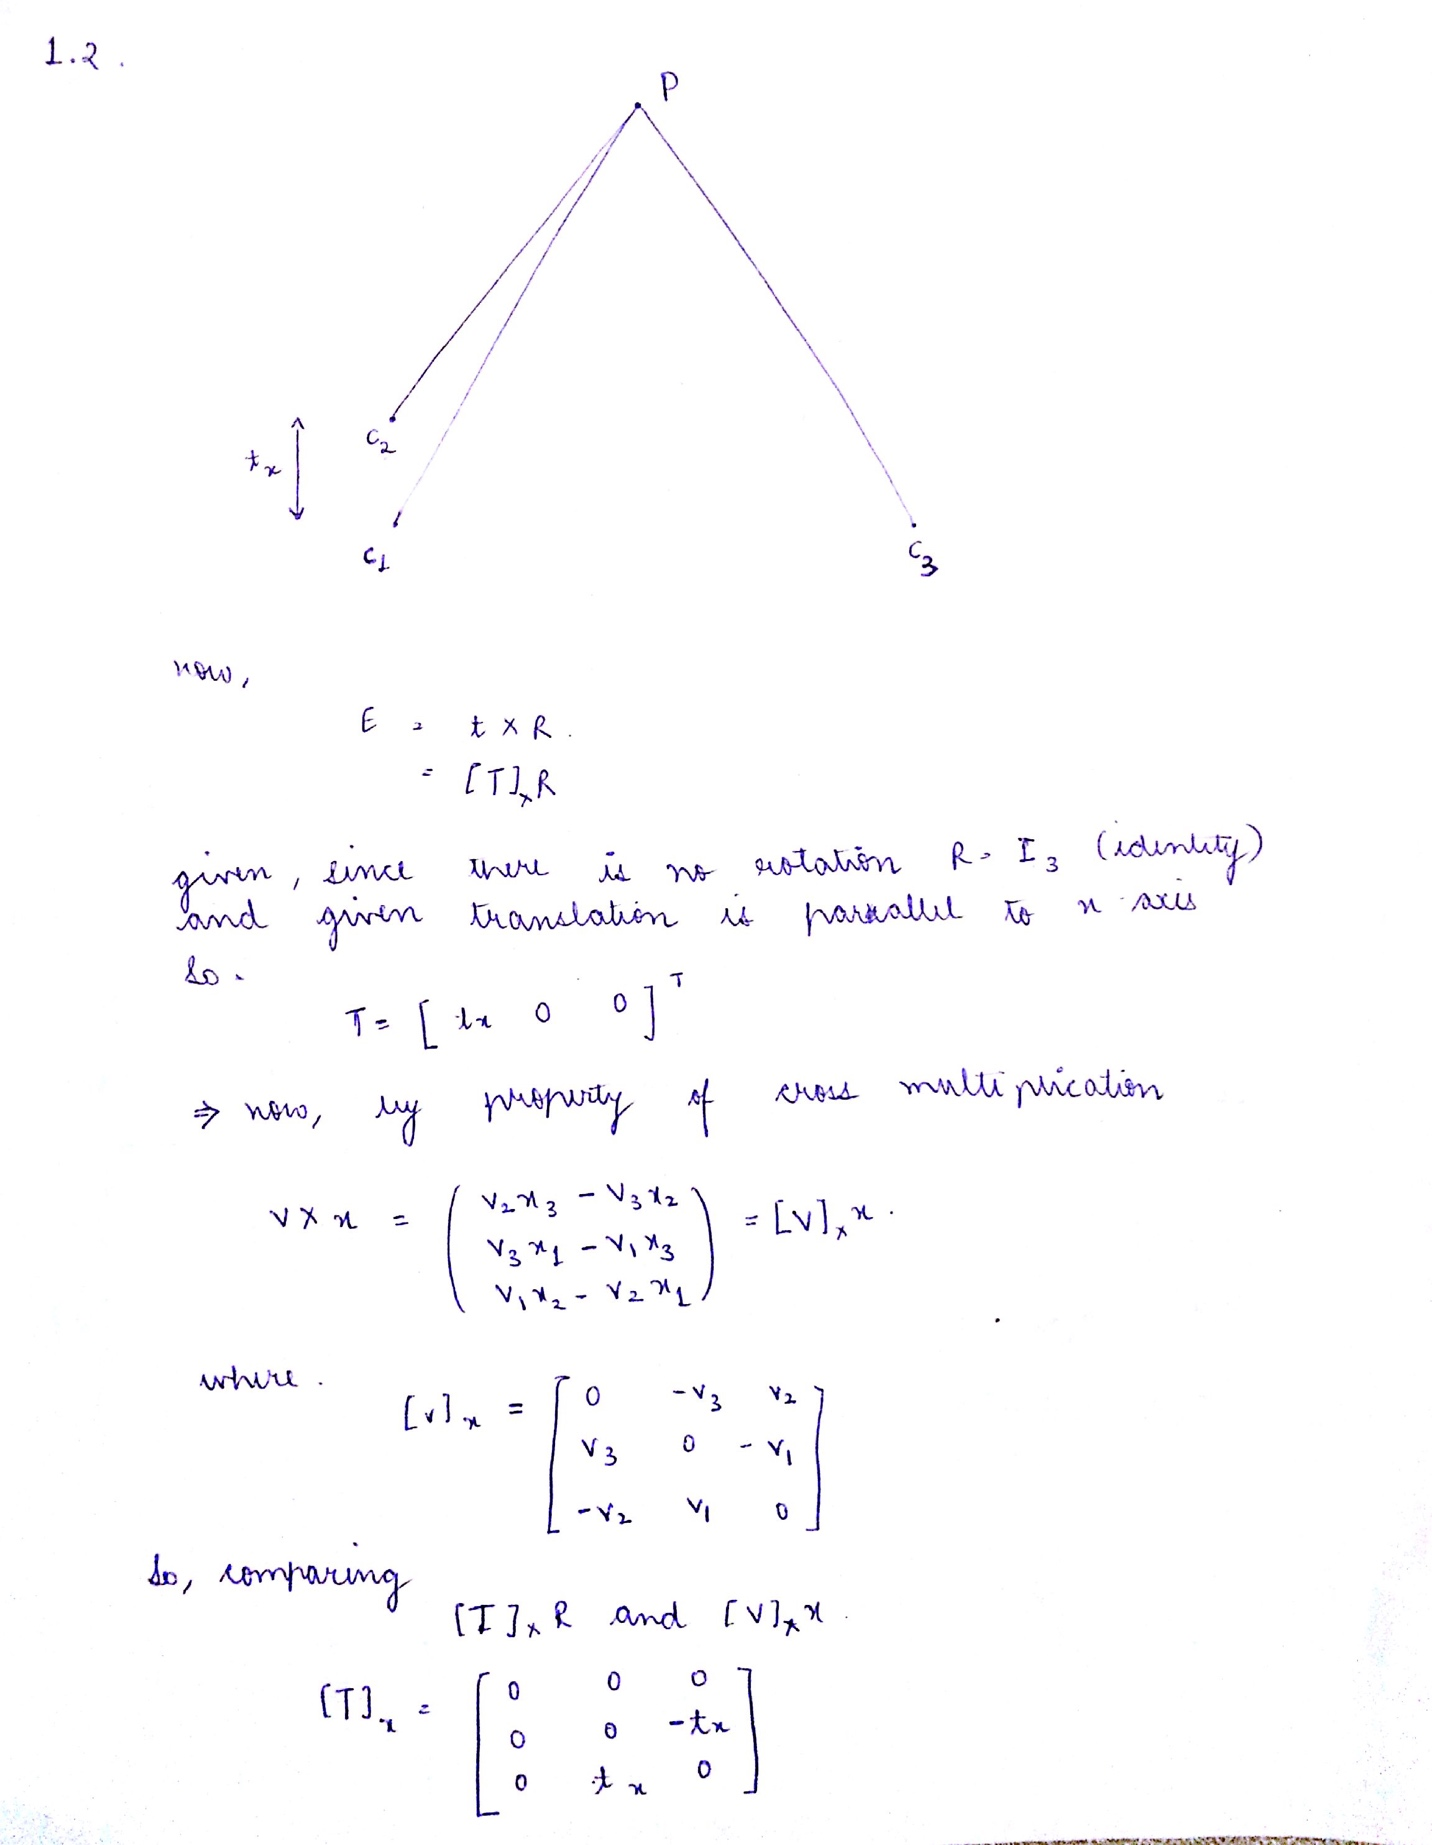 1.2.
P
C2
tx
C1
C3
now,
E = t × R.
= [T]×R
given, since there is no rotation R = I3 (identity)
and given translation is parallel to x-axis
So.
T = [ tx 0 0 ]^T
⇒ now, by property of cross multiplication
v × x = ( v2x3 − v3x2
v3x1 − v1x3
v1x2 − v2x1 ) = [v]×x.
where.
[v]x = [ 0 −v3 v2
v3 0 −v1
−v2 v1 0 ]
So, comparing
[T]×R and [v]×x.
[T]x = [ 0 0 0
0 0 −tx
0 tx 0 ]